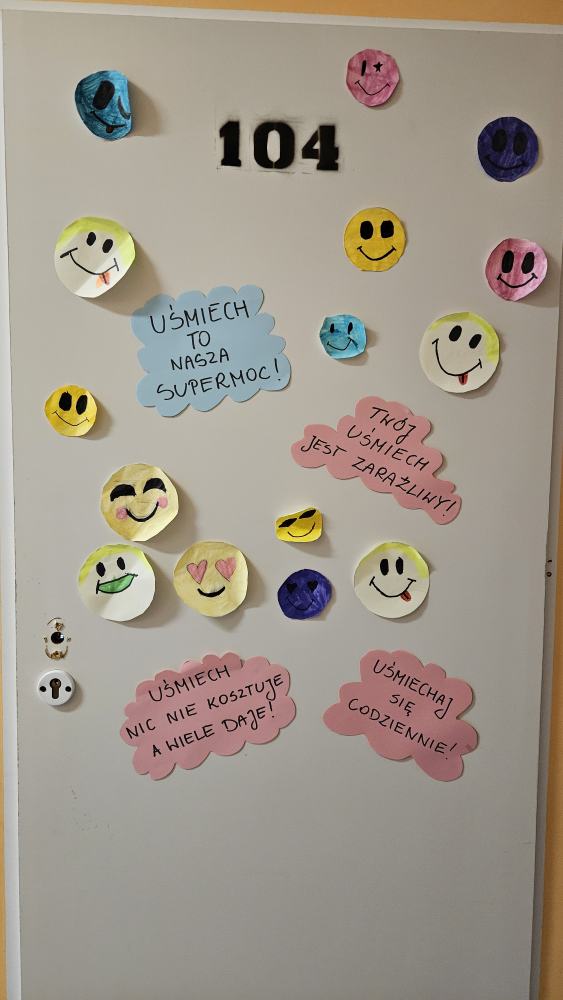 104
UŚMIECH
TO
NASZA
SUPERMOC!
TWÓJ
UŚMIECH
JEST ZARAŹLIWY!
UŚMIECH
NIC NIE KOSZTUJE
A WIELE DAJE!
UŚMIECHAJ
SIĘ
CODZIENNIE!